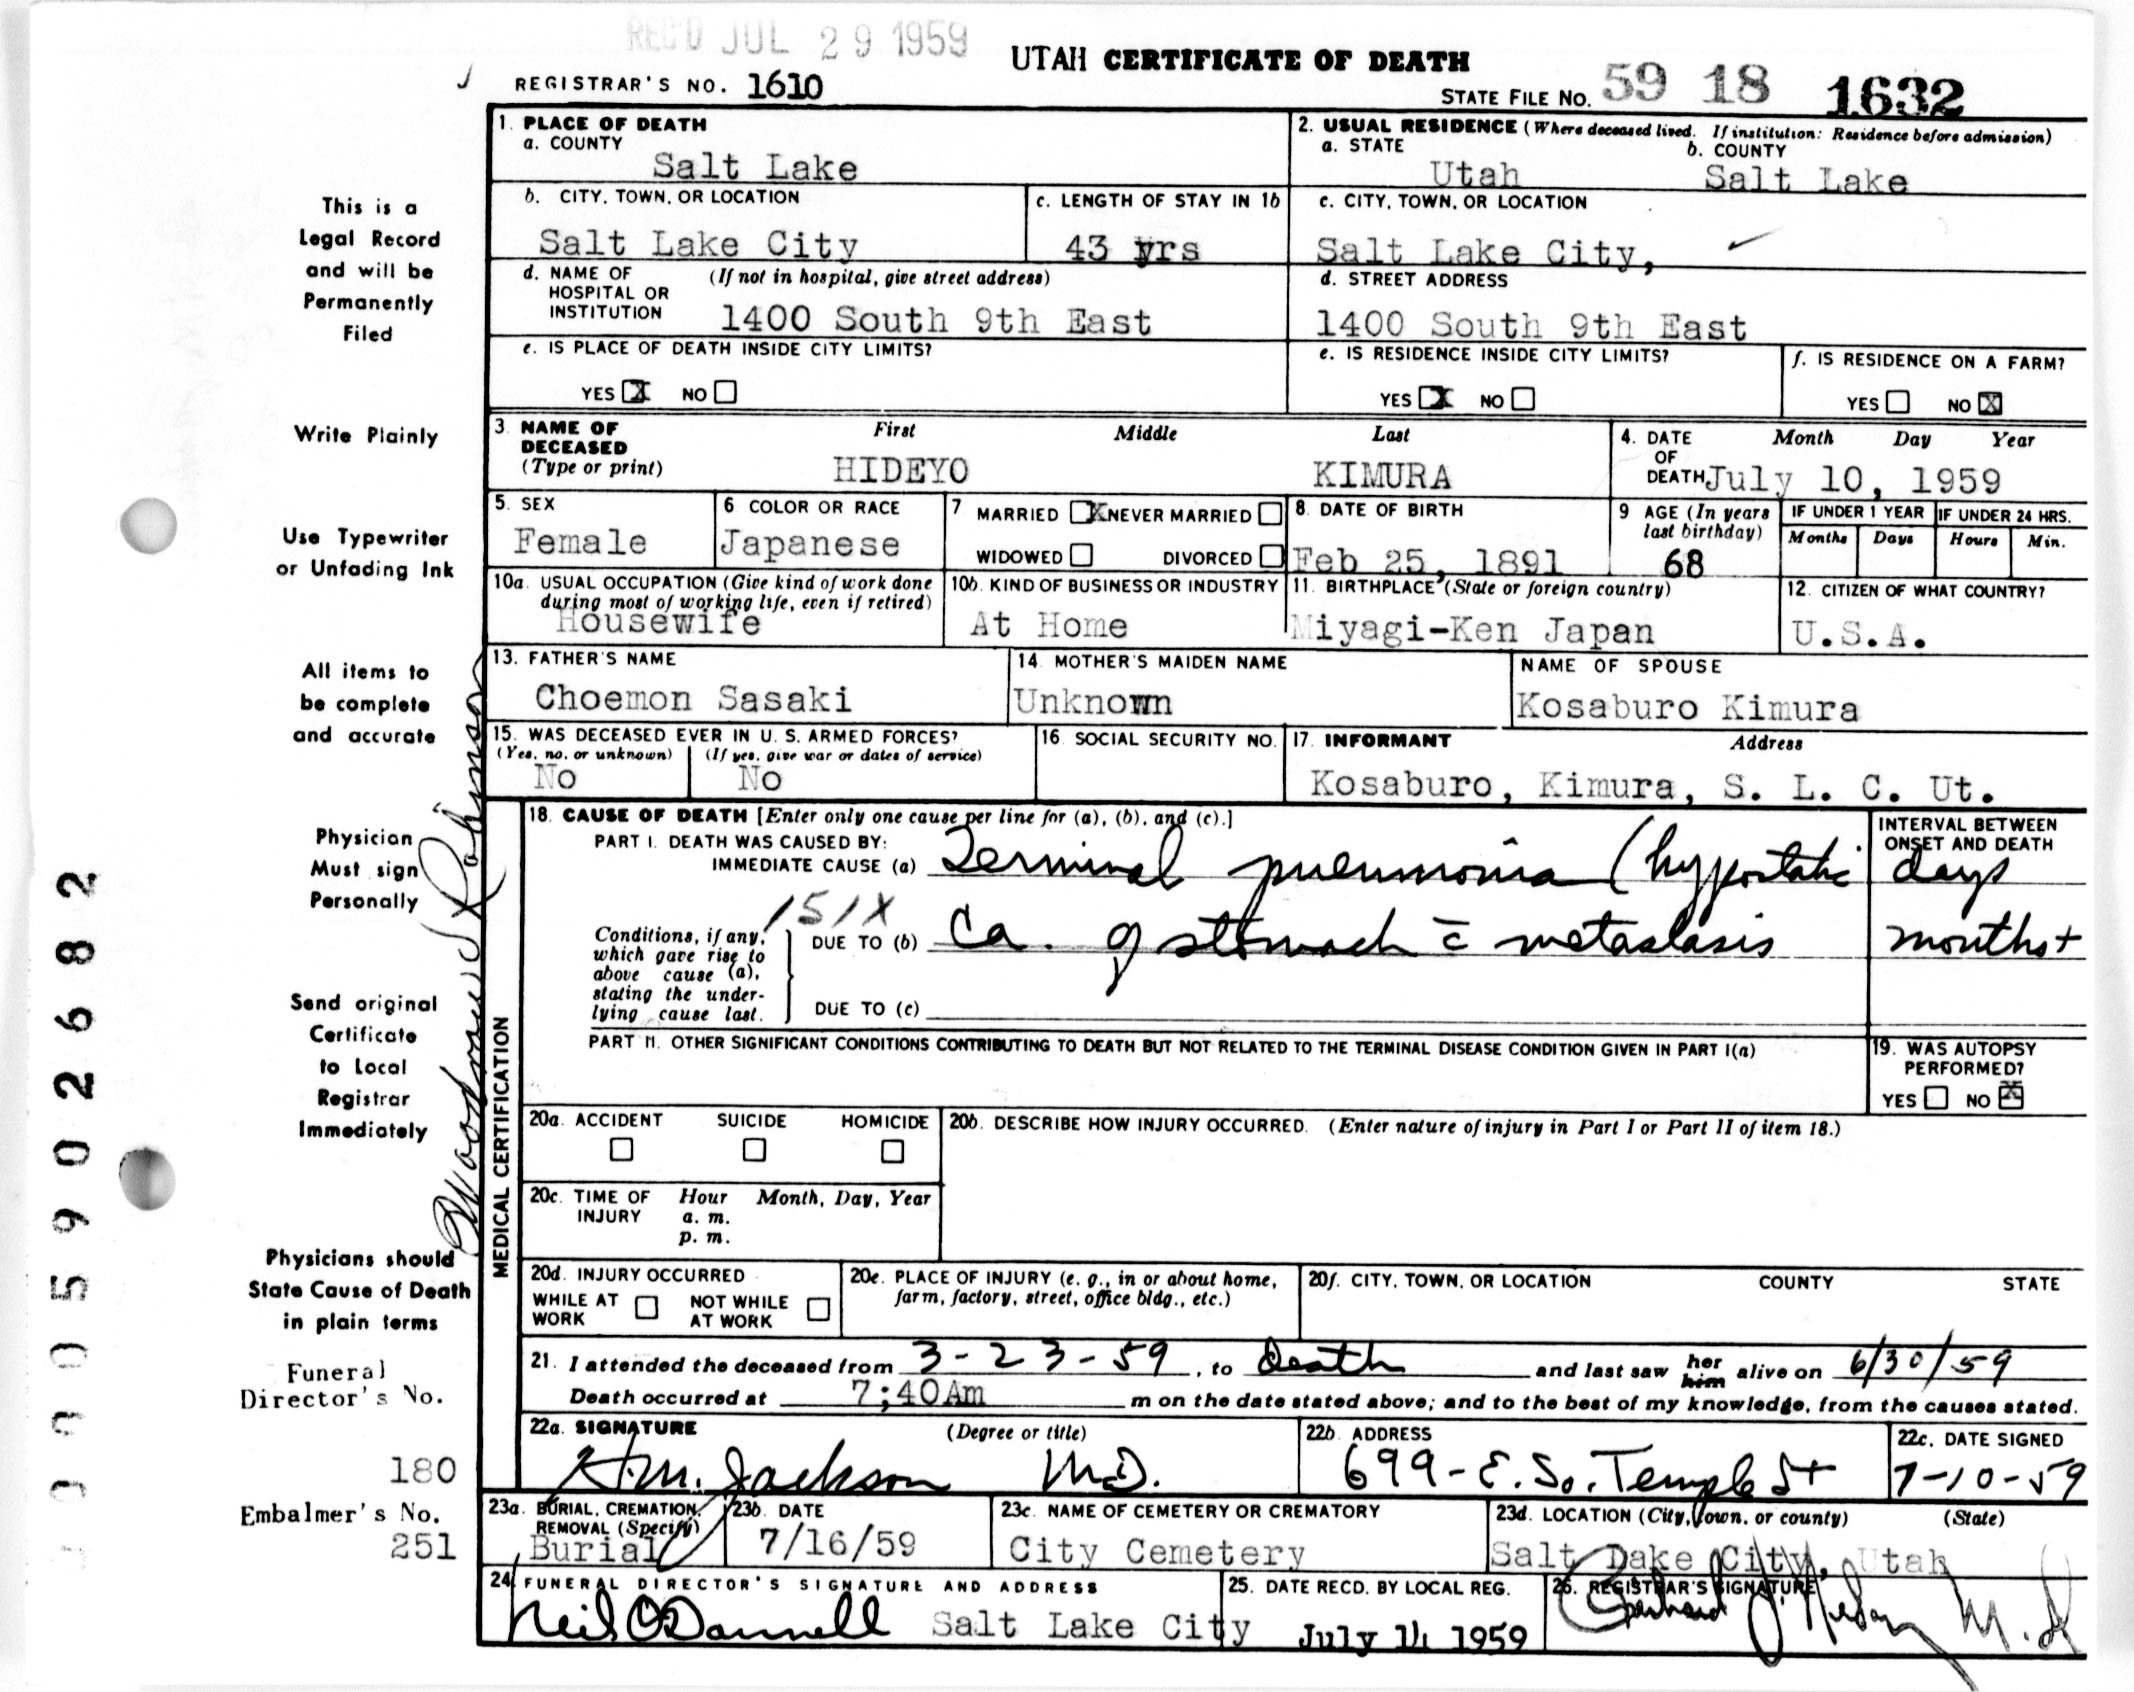 REC'D JUL 29 1959
UTAH CERTIFICATE OF DEATH
REGISTRAR'S NO. 1610
STATE FILE NO. 59 18 1632
1. PLACE OF DEATH
a. COUNTY
Salt Lake
2. USUAL RESIDENCE (Where deceased lived. If institution: Residence before admission)
a. STATE b. COUNTY
Utah Salt Lake
b. CITY, TOWN, OR LOCATION
Salt Lake City
c. LENGTH OF STAY IN 1b
43 yrs
c. CITY, TOWN, OR LOCATION
Salt Lake City,
d. NAME OF (If not in hospital, give street address)
HOSPITAL OR
INSTITUTION 1400 South 9th East
d. STREET ADDRESS
1400 South 9th East
e. IS PLACE OF DEATH INSIDE CITY LIMITS?
YES X NO
e. IS RESIDENCE INSIDE CITY LIMITS?
YES X NO
f. IS RESIDENCE ON A FARM?
YES NO X
3. NAME OF First Middle Last
DECEASED
(Type or print) HIDEYO KIMURA
4. DATE Month Day Year
OF
DEATH July 10, 1959
5. SEX
Female
6 COLOR OR RACE
Japanese
7 MARRIED X NEVER MARRIED
WIDOWED DIVORCED
8. DATE OF BIRTH
Feb 25, 1891
9 AGE (In years
last birthday)
68
IF UNDER 1 YEAR
Months Days
IF UNDER 24 HRS.
Hours Min.
10a. USUAL OCCUPATION (Give kind of work done
during most of working life, even if retired)
Housewife
10b. KIND OF BUSINESS OR INDUSTRY
At Home
11. BIRTHPLACE (State or foreign country)
Miyagi-Ken Japan
12. CITIZEN OF WHAT COUNTRY?
U.S.A.
13. FATHER'S NAME
Choemon Sasaki
14. MOTHER'S MAIDEN NAME
Unknown
NAME OF SPOUSE
Kosaburo Kimura
15. WAS DECEASED EVER IN U. S. ARMED FORCES?
(Yes, no, or unknown) (If yes, give war or dates of service)
No No
16. SOCIAL SECURITY NO.
17. INFORMANT Address
Kosaburo, Kimura, S. L. C. Ut.
MEDICAL CERTIFICATION
18. CAUSE OF DEATH [Enter only one cause per line for (a), (b), and (c).]
PART I. DEATH WAS CAUSED BY:
IMMEDIATE CAUSE (a) Terminal pneumonia (hypostatic
INTERVAL BETWEEN
ONSET AND DEATH
days
151X
Conditions, if any,
which gave rise to
above cause (a),
stating the under-
lying cause last.
DUE TO (b) Ca. of stomach c̄ metastasis
months+
DUE TO (c)
PART II. OTHER SIGNIFICANT CONDITIONS CONTRIBUTING TO DEATH BUT NOT RELATED TO THE TERMINAL DISEASE CONDITION GIVEN IN PART I(a)
19. WAS AUTOPSY
PERFORMED?
YES NO X
20a. ACCIDENT SUICIDE HOMICIDE
20b. DESCRIBE HOW INJURY OCCURRED. (Enter nature of injury in Part I or Part II of item 18.)
20c. TIME OF Hour Month, Day, Year
INJURY a. m.
p. m.
20d. INJURY OCCURRED
WHILE AT NOT WHILE
WORK AT WORK
20e. PLACE OF INJURY (e. g., in or about home,
farm, factory, street, office bldg., etc.)
20f. CITY, TOWN, OR LOCATION COUNTY STATE
21. I attended the deceased from 3-23-59, to death and last saw her him alive on 6/30/59
Death occurred at 7:40Am m on the date stated above; and to the best of my knowledge, from the causes stated.
22a. SIGNATURE (Degree or title)
H.M. Jackson M.D.
22b. ADDRESS
699-E. So. Temple St
22c. DATE SIGNED
7-10-59
23a. BURIAL, CREMATION,
REMOVAL (Specify)
Burial
23b. DATE
7/16/59
23c. NAME OF CEMETERY OR CREMATORY
City Cemetery
23d. LOCATION (City, town, or county) (State)
Salt Lake City, Utah
24. FUNERAL DIRECTOR'S SIGNATURE AND ADDRESS
Neil O'Donnell Salt Lake City
25. DATE RECD. BY LOCAL REG.
July 14 1959
26. REGISTRAR'S SIGNATURE
M.D
This is a
Legal Record
and will be
Permanently
Filed
Write Plainly
Use Typewriter
or Unfading Ink
All items to
be complete
and accurate
Physician
Must sign
Personally
Send original
Certificate
to Local
Registrar
Immediately
Physicians should
State Cause of Death
in plain terms
Funeral
Director's No.
180
Embalmer's No.
251
Woodrow J Robinson
5902682